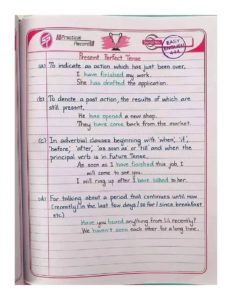 Practical
Record
EASY
Present Perfect Tense
(a) To indicate an action which has just been over,
I have finished my work.
She has drafted the application.
(b) To denote a past action, the results of which are
still present,
He has opened a new shop.
They have come back from the market.
(c) In adverbial clauses beginning with 'when', 'if',
'before', 'after', 'as soon as' or 'till' and when the
principal verb is in Future Tense.
As soon as I have finished this job, I
will come to see you.
I will ring up after I have talked to her.
(d) For talking about a period that continues until now
(recently / in the last few days / so far / since breakfast
etc.)
Have you heard anything from lili recently?
We haven't seen each other for a long time.